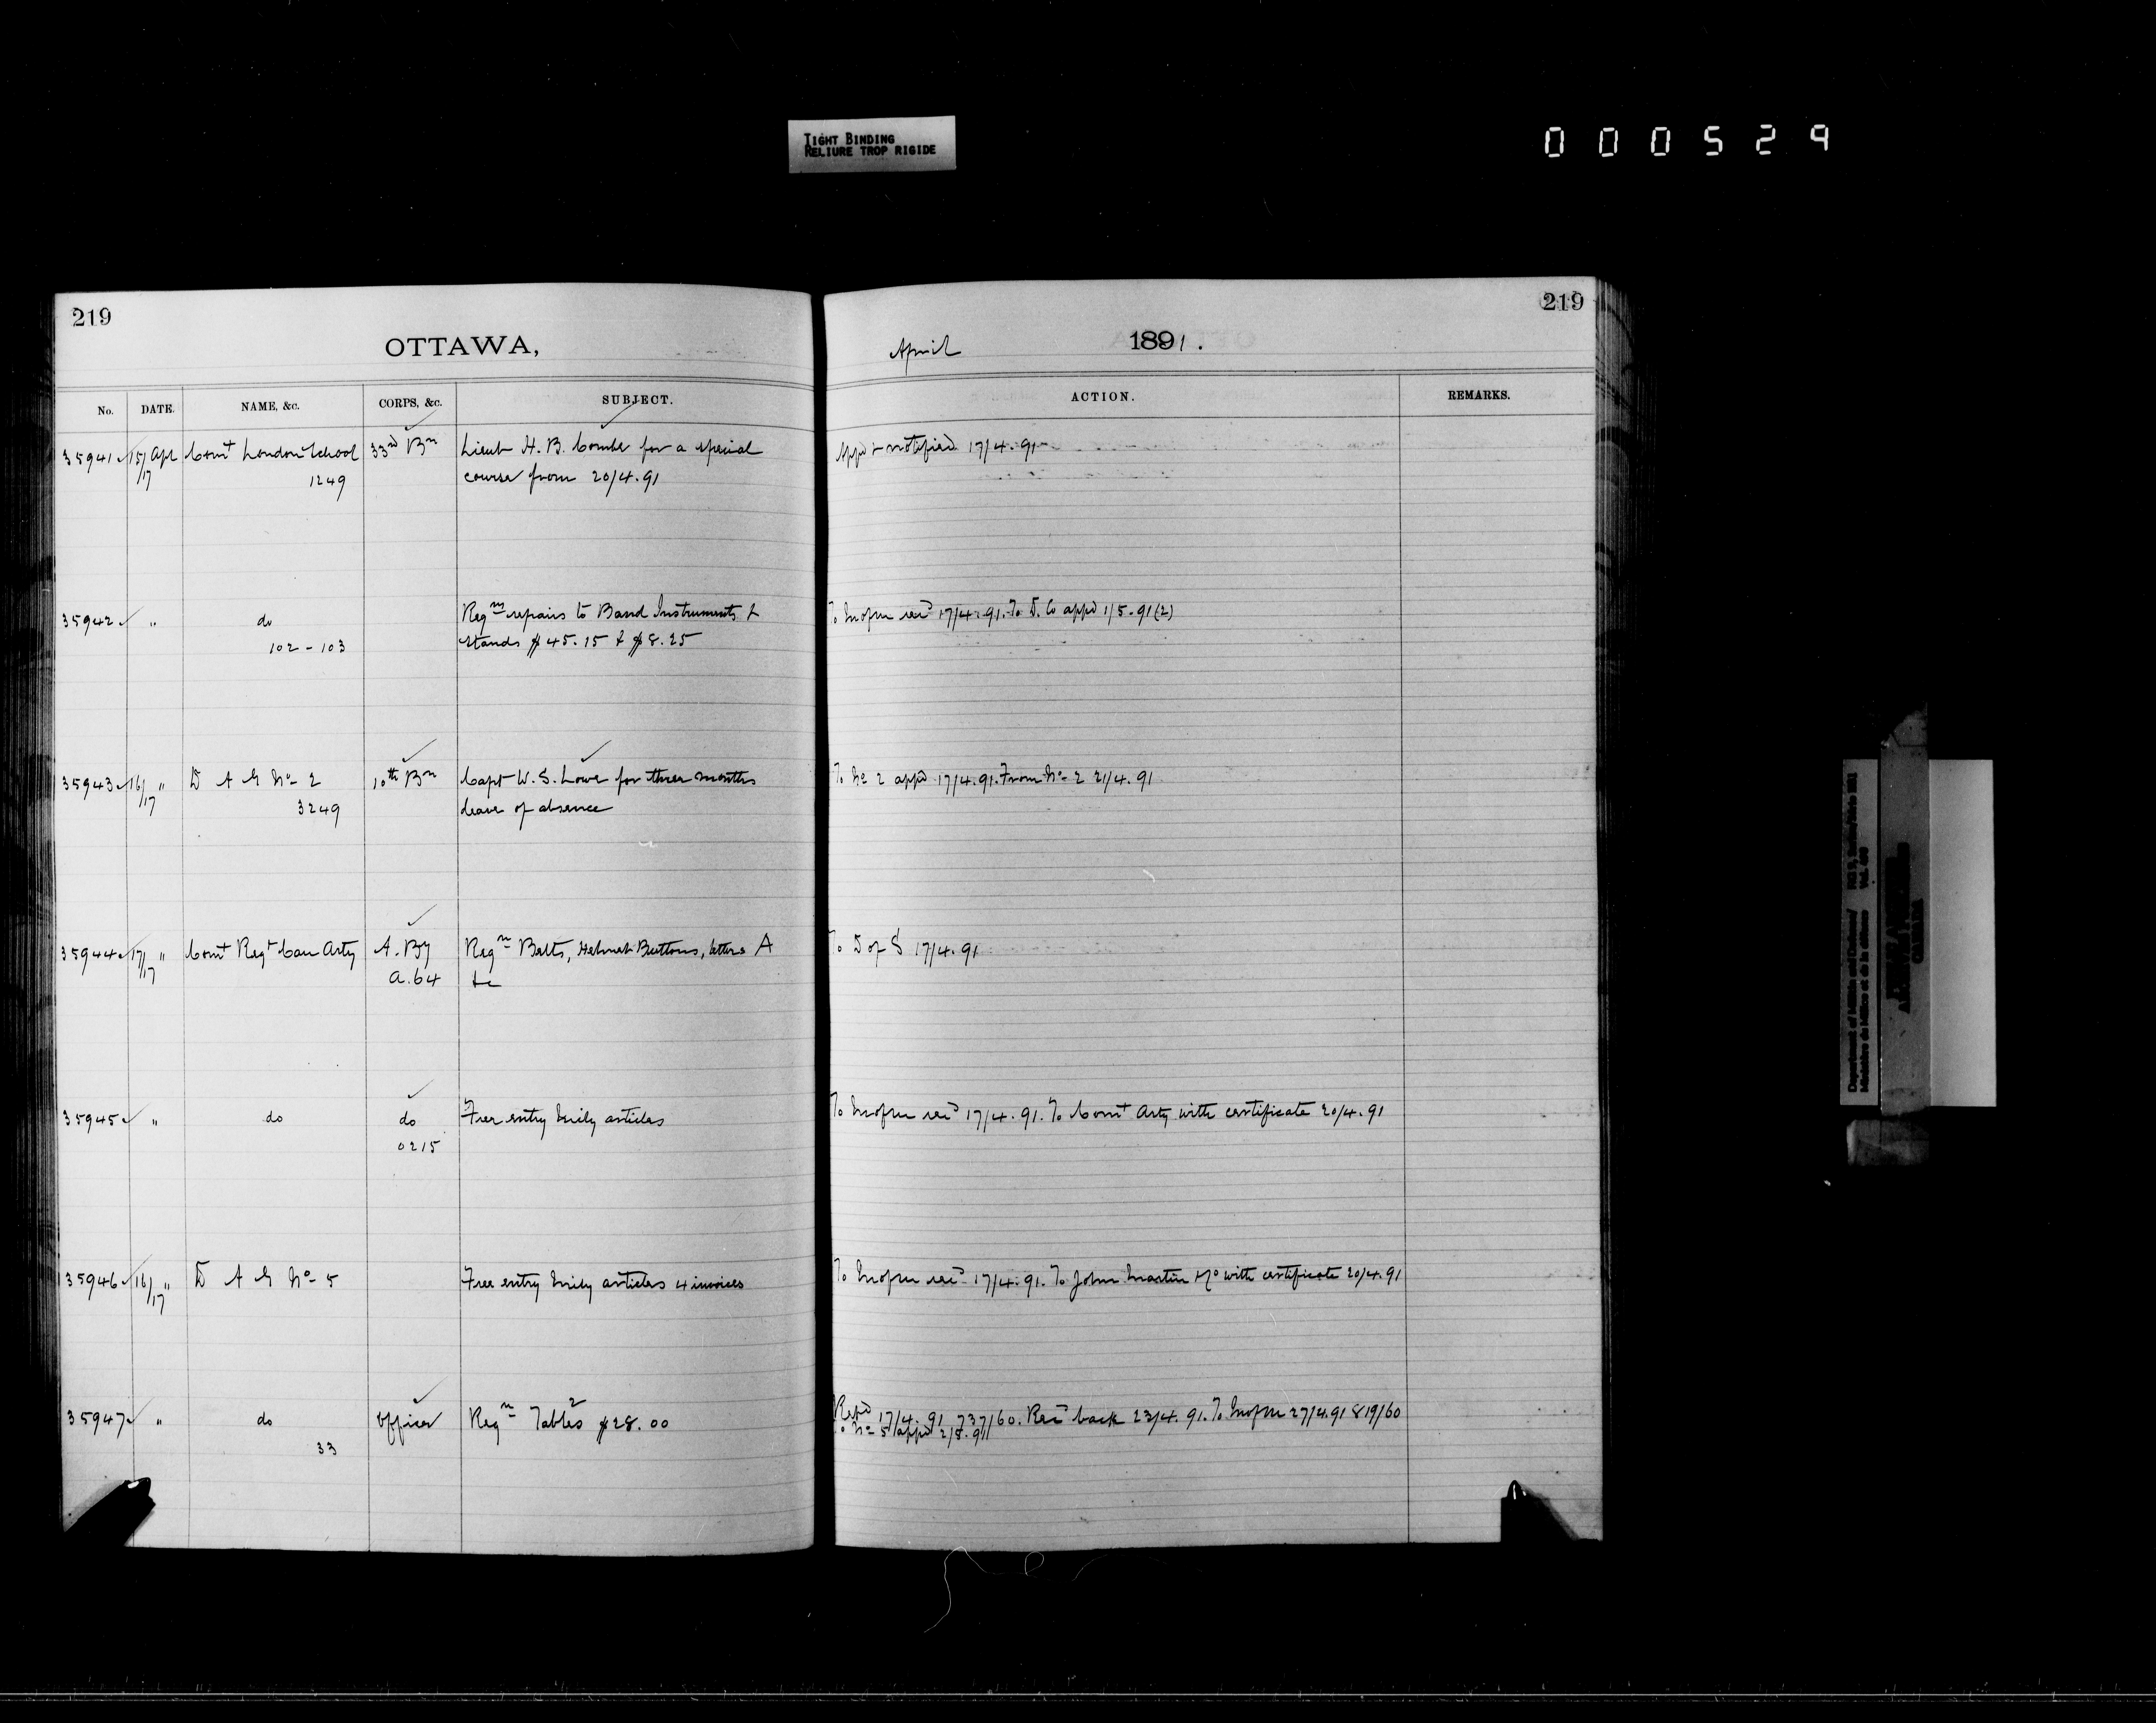 TIGHT BINDING
RELIURE TROP RIGIDE
000529
219
OTTAWA,
No. DATE. NAME, &c. CORPS, &c. SUBJECT.
35941 15/17 Apl Comt London School 33rd Bn Lieut H. B. Combe for a special
1249 course from 20/4.91
35942 " do Reqn repairs to Band Instruments &
102-103 stands $45.15 & $8.25
35943 16/17 " D A G No 2 10th Bn Capt W. S. Lowe for three months
3249 leave of absence
35944 17/17 " Comt Regt Can Arty A. By Reqn Belts, Helmet Buttons, letters A
A.64 &c
35945 " do do Free entry Mily articles
0215
35946 16/17 " D A G No 5 Free entry Mily articles 4 invoices
35947 " do Officer Reqn Tables 2 $28.00
33
219
April 1891.
ACTION. REMARKS.
Appd & notified 17/4.91
To recd 17/4.91. To D. Co appd 1/5.91 (2)
To No 2 appd 17/4.91. From No 2 21/4.91
To D of S 17/4.91
To recd 17/4.91. To Comt Arty with certificate 20/4.91
To recd 17/4.91. To John Martin & Co with certificate 20/4.91
Retd 17/4.91 737/60. Recd back 23/4.91. To 27/4.91 819/60
To No 5 appd 2/5.91
Department of Militia and Defence/
Ministère de la Milice et de la Défense